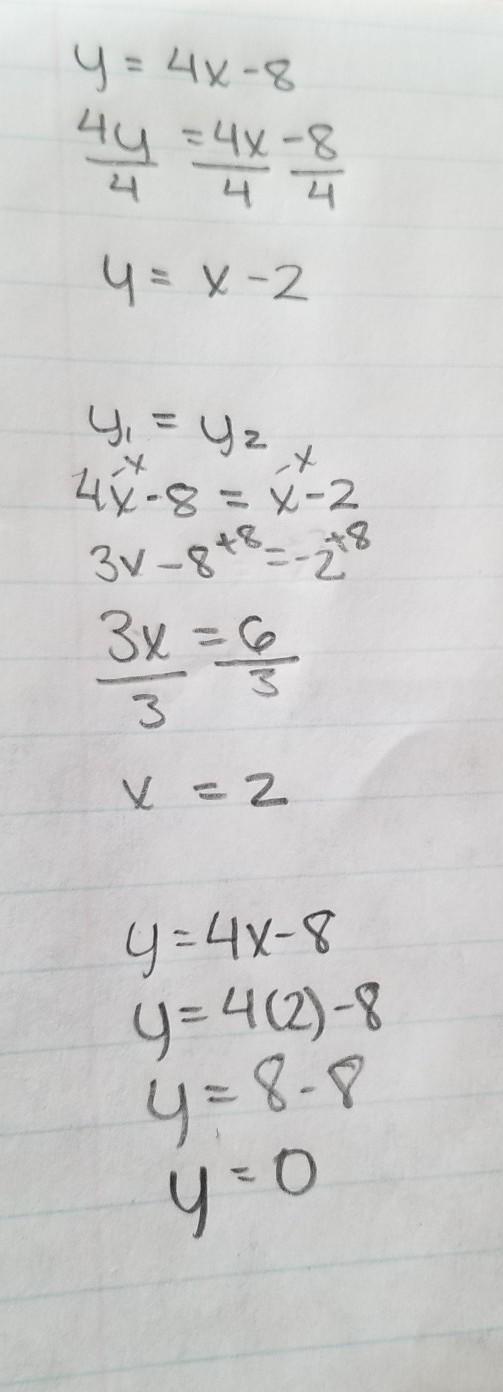 y = 4x - 8
4y/4 = 4x/4 - 8/4
y = x - 2
y₁ = y₂
4x^-x - 8 = x^-x - 2
3x - 8^+8 = -2^+8
3x/3 = 6/3
x = 2
y = 4x - 8
y = 4(2) - 8
y = 8 - 8
y = 0